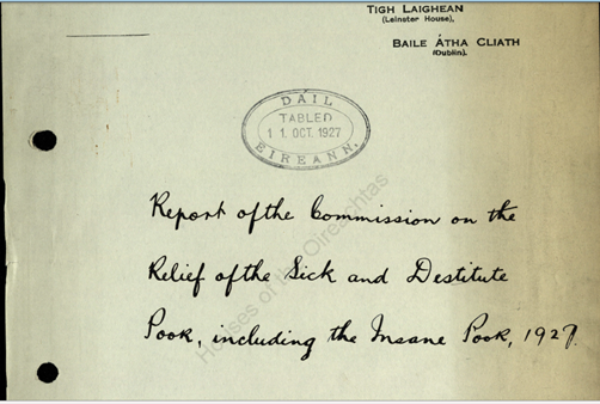 TIGH LAIGHEAN
(Leinster House),
BAILE ÁTHA CLIATH
(Dublin).
DÁIL
TABLED
11 OCT. 1927
EIREANN.
Report of the Commission on the
Relief of the Sick and Destitute
Poor, including the Insane Poor, 1927.
Houses of the Oireachtas